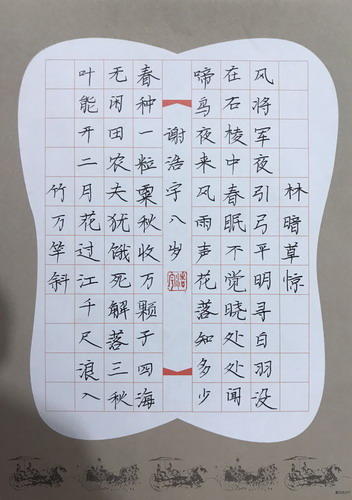 林暗草惊
风将军夜引弓平明寻白羽没
在石棱中春眠不觉晓处处闻
啼鸟夜来风雨声花落知多少
谢浩宇八岁
春种一粒粟秋收万颗子四海
无闲田农夫犹饿死解落三秋
叶能开二月花过江千尺浪入
竹万竿斜